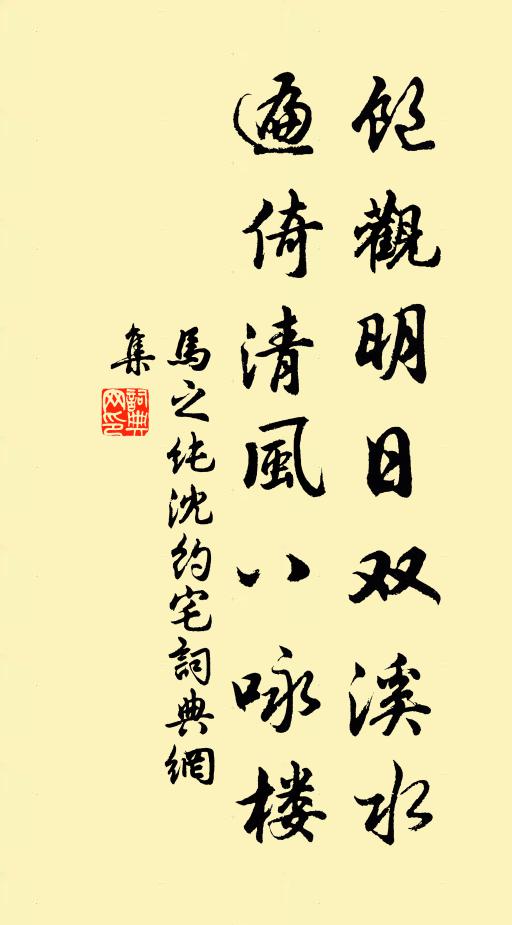 飽觀明日双溪水
遍倚清風八咏楼
馬之純沈約宅詞典網
集
詞典
网印